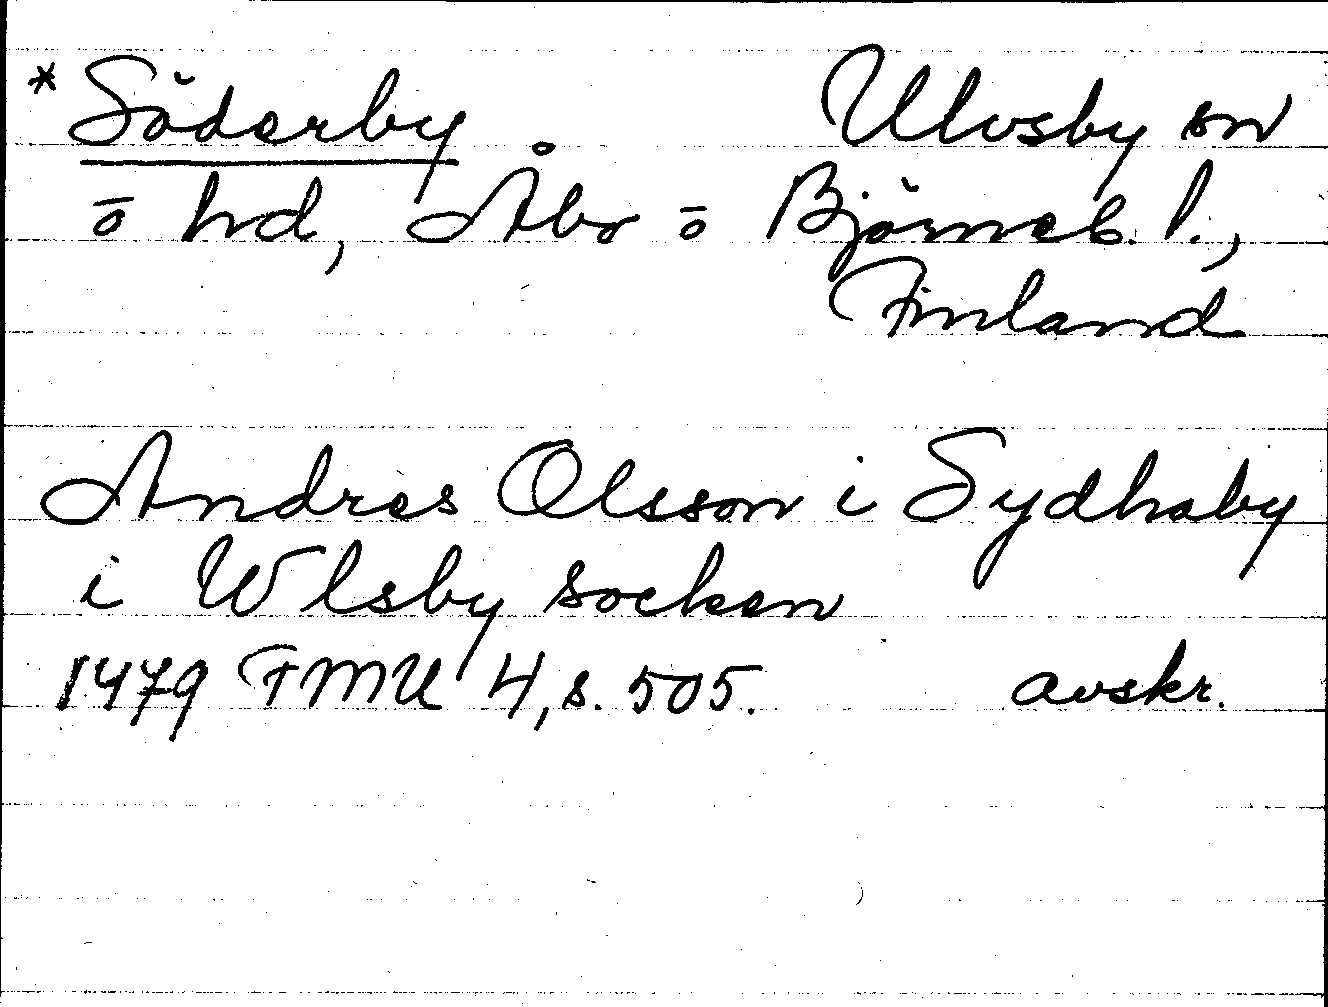 * Söderby Ulvsby sn
ō hd, Åbo ō Björneb. l.,
Finland
Andres Olsson i Sydhaby
i Wlsby socken
1479 FMU 4, s. 505. avskr.